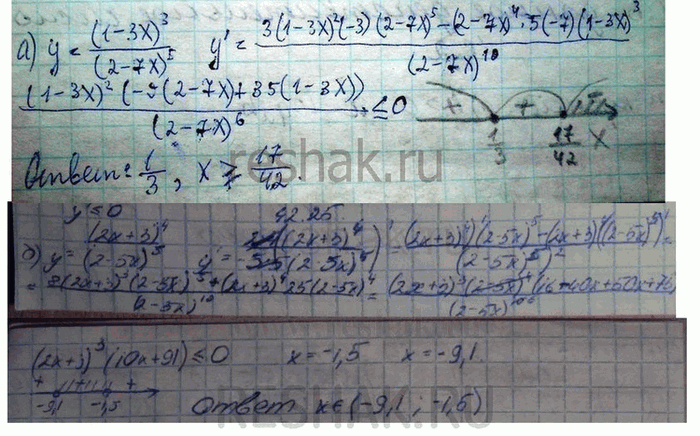 а) y = (1-3x)³/(2-7x)⁵ y' = 3(1-3x)²(-3)(2-7x)⁵-(2-7x)⁴·5(-7)(1-3x)³/(2-7x)¹⁰
(1-3x)²(-9(2-7x)+35(1-3x))/(2-7x)⁶ ≤ 0
+ + 1/3 17/42 x
Ответ: 1/3, x ≥ 17/42.
reshak.ru
y' ≤ 0 42.25.
б) y = (2x+3)⁴/(2-5x)⁵
= 8(2x+3)³(2-5x)⁵+(2x+3)⁴25(2-5x)⁴/(2-5x)¹⁰ = (2x+3)³(2-5x)⁴(16-40x+50x+75)
(2x+3)³(10x+91) ≤ 0 x = -1,5 x = -9,1
+ +
-9,1 -1,5
Ответ x∈(-9,1; -1,5)
RESHAK.RU